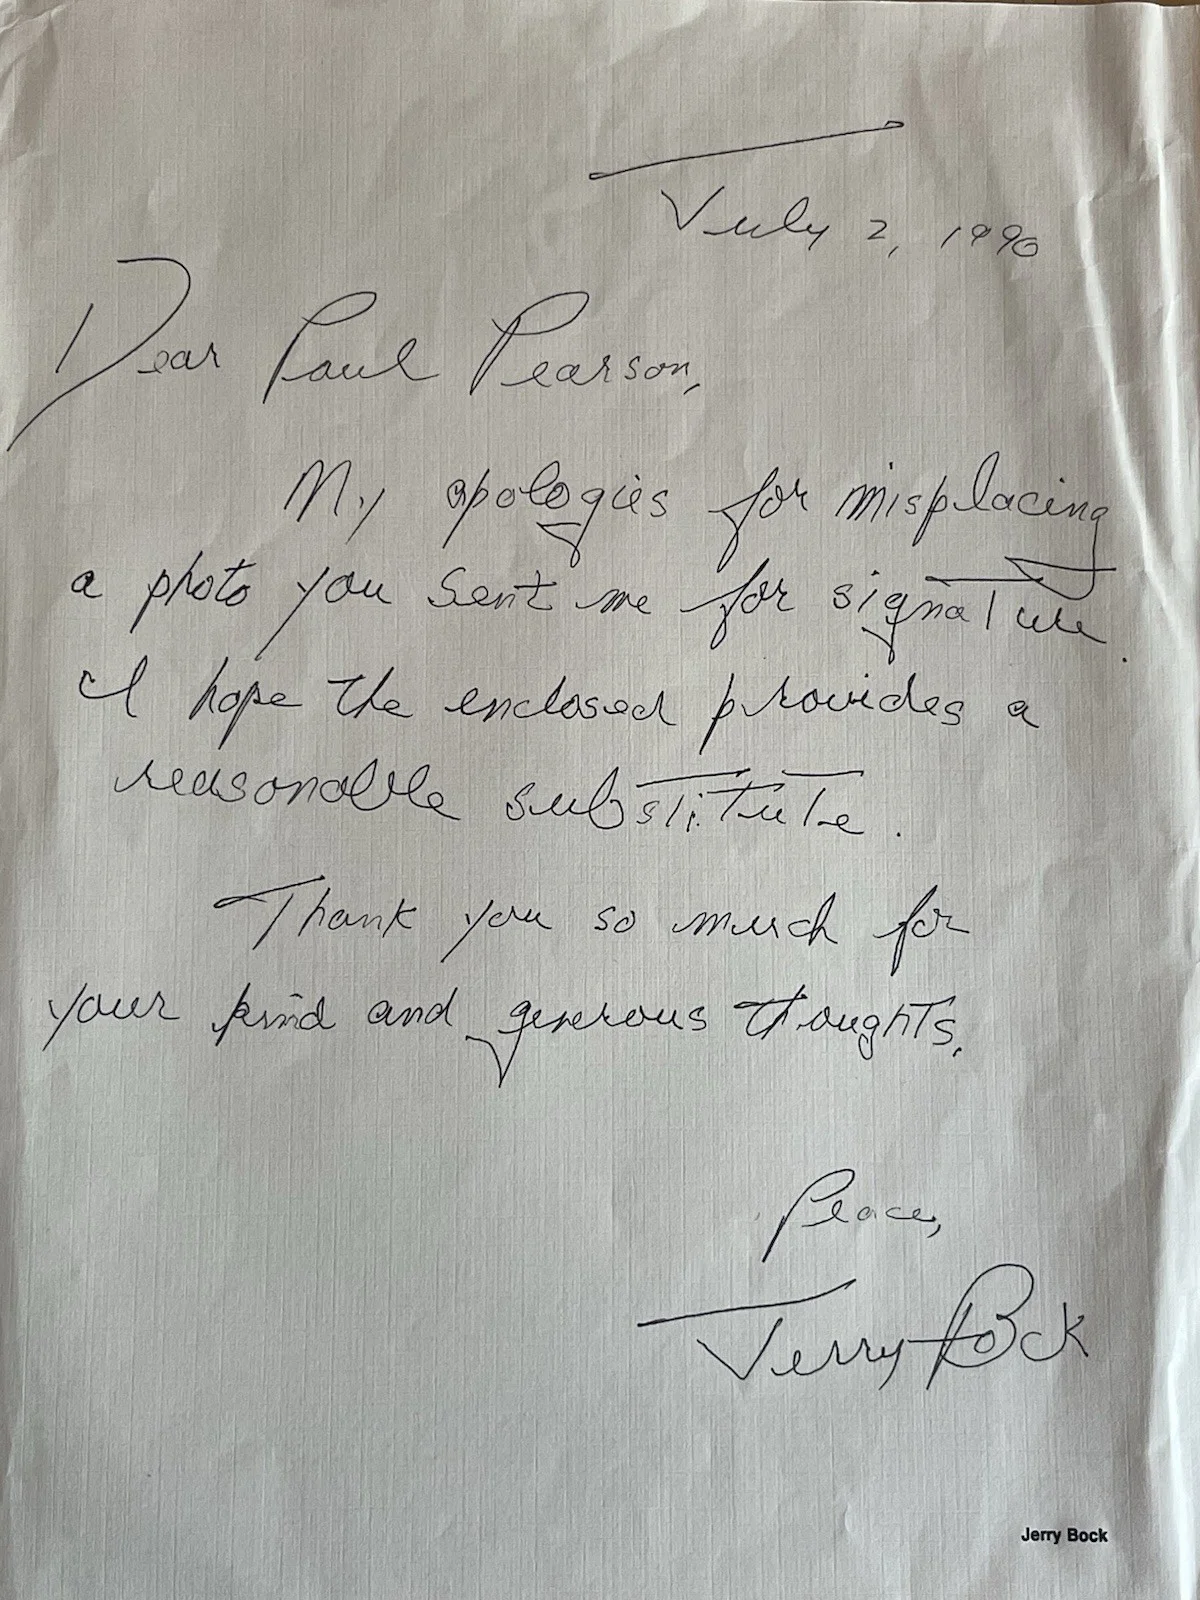 July 2, 1990
Dear Paul Pearson,
My apologies for misplacing
a photo you sent me for signature.
I hope the enclosed provides a
reasonable substitute.
Thank you so much for
your kind and generous thoughts.
Peace,
Jerry Bock
Jerry Bock